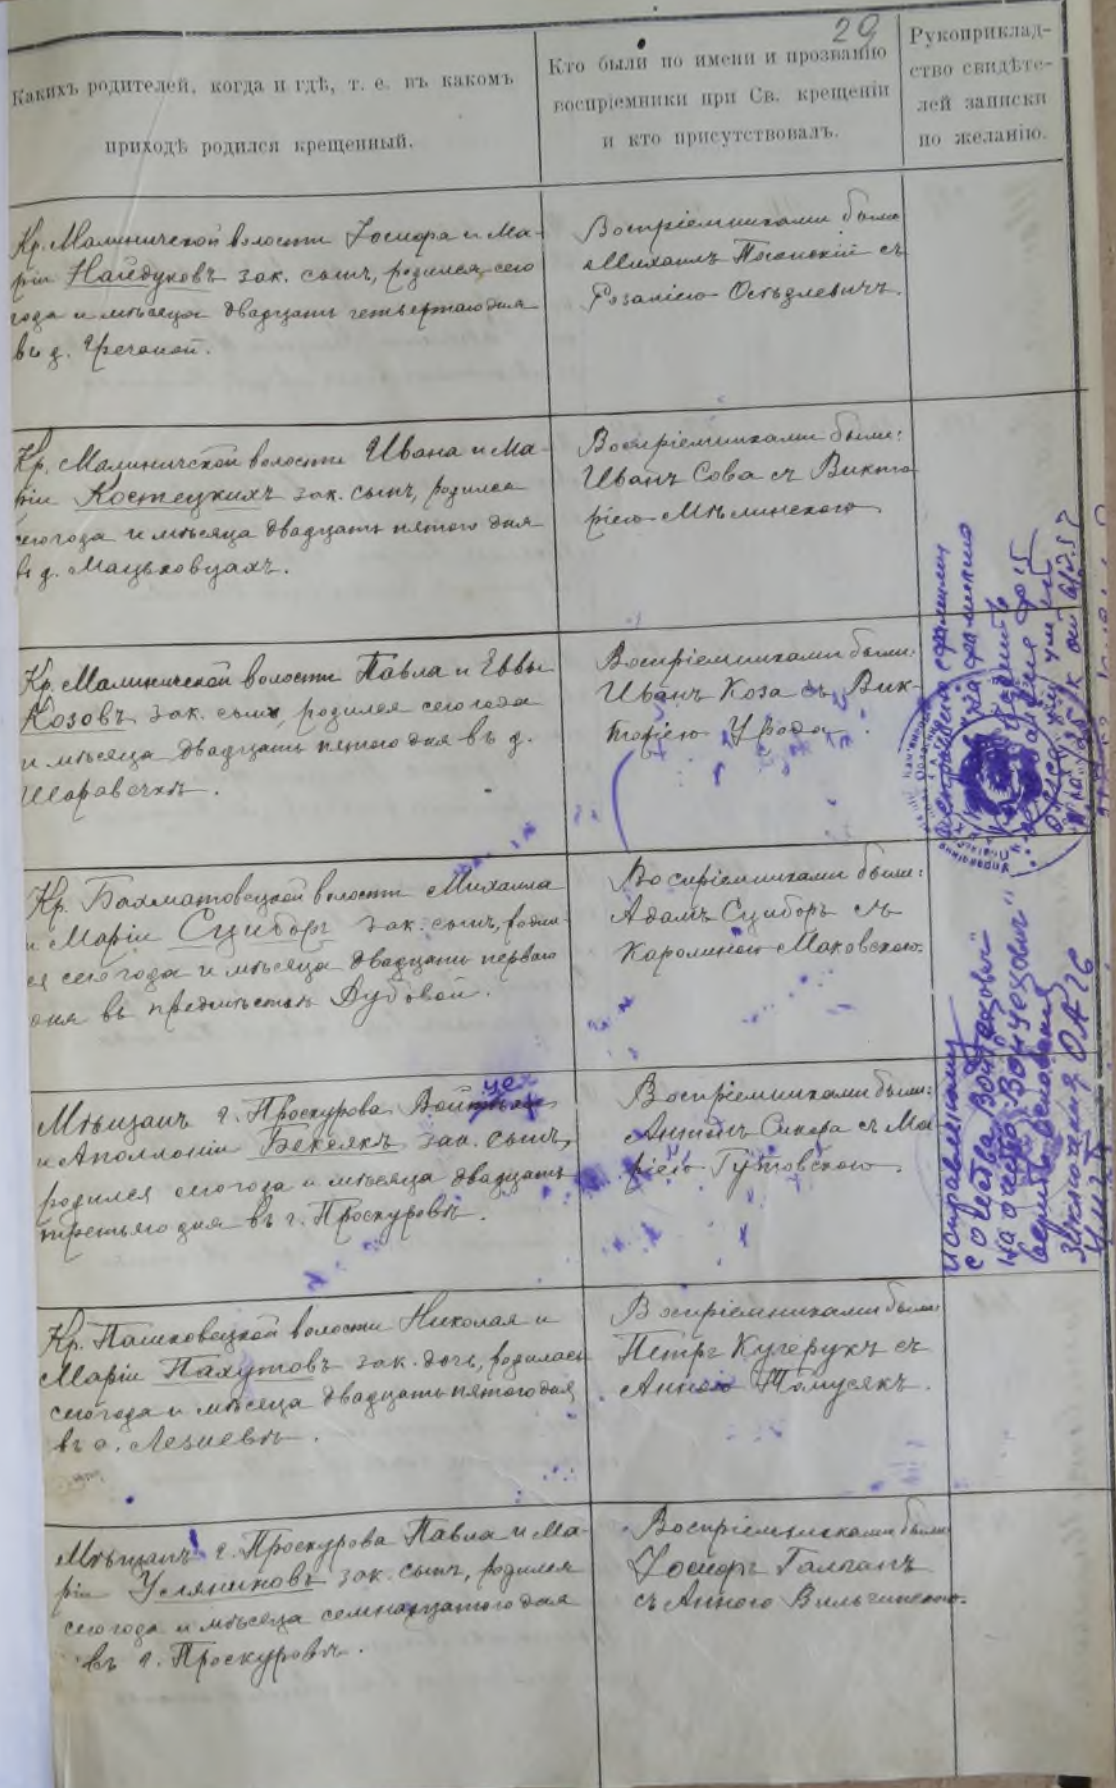 29
Какихъ родителей, когда и гдѣ, т. е. въ какомъ
приходѣ родился крещенный.
Кто были по имени и прозванію
воспріемники при Св. крещеніи
и кто присутствовалъ.
Рукоприклад-
ство свидѣте-
лей записки
по желанію.
Кр. Малиничской волости Іосифа и Ма-
ріи Найдуковъ зак. сынъ, родился сего
года и мѣсяца двадцать четвертаго дня
въ д. Гречаной.
Воспріемниками были
Михаилъ с
Розаліею
Кр. Малиничской волости Ивана и Ма-
ріи Костецкихъ зак. сынъ, родился
сего года и мѣсяца двадцать пятого дня
въ д. Мацьковцахъ.
Воспріемниками были:
Иванъ Сова съ Викто
ріею Мѣлинскою
Кр. Малиничской волости Павла и Еввы
Козовъ зак. сынъ, родился сего года
и мѣсяца двадцать пятого дня въ д.
Шаровечкѣ.
Воспріемниками были:
Иванъ Коза съ Вик-
торіею Урода.
Кр. Бахматовецкой волости Михаила
и Маріи Сциборъ зак. сынъ, родил-
ся сего года и мѣсяца двадцать перваго
дня въ предмѣстьи Дубовой.
Воспріемниками были:
Адамъ Сциборъ съ
Каролиною Маковскою.
Мѣщанъ г. Проскурова
и Аполлоніи Бекеякъ зак. сынъ,
родился сего года и мѣсяца двадцать
третьяго дня въ г. Проскуровѣ.
Воспріемниками были:
Антонъ Сикора съ Ма
ріею Гутовскою.
исправленному
с отчества "Войтехович"
на отчество "Войцехович"
верить основание
заключения ОАГС
Кр. Пашковецкой волости Николая и
Маріи Пахутовъ зак. дочь, родилась
сего года и мѣсяца двадцать пятого дня
въ с. Лезневѣ.
Воспріемниками были
Петръ Кучерукъ съ
Анною Томусякъ.
Мѣщанъ г. Проскурова Павла и Ма-
ріи Услянковъ зак. сынъ, родился
сего года и мѣсяца семнадцатого дня
въ г. Проскуровѣ.
Воспріемниками были
Іосифъ Галганъ
съ Анною Вильчинскою.